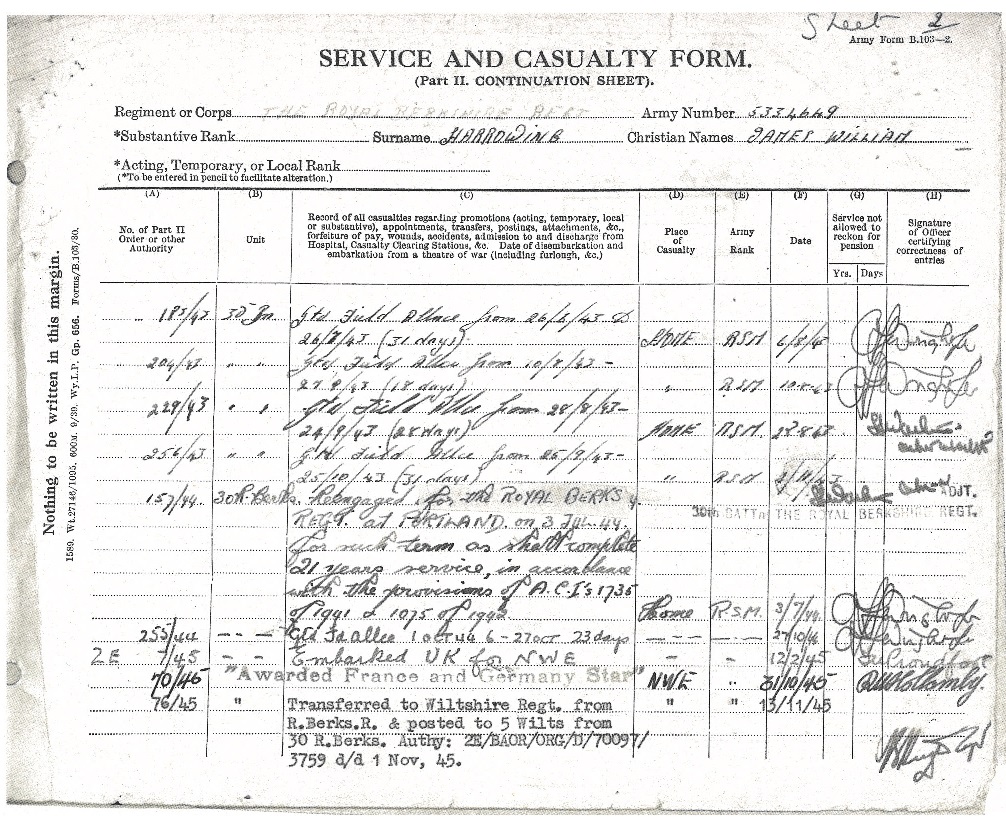 Sheet 2
Army Form B.103—2.
SERVICE AND CASUALTY FORM.
(Part II. CONTINUATION SHEET).
Regiment or Corps THE ROYAL BERKSHIRE REGT Army Number 5334649
*Substantive Rank Surname HARROWING Christian Names JAMES WILLIAM
*Acting, Temporary, or Local Rank
(*To be entered in pencil to facilitate alteration.)
(A) (B) (C) (D) (E) (F) (G) (H)
No. of Part II Order or other Authority
Unit
Record of all casualties regarding promotions (acting, temporary, local
or substantive), appointments, transfers, postings, attachments, &c.,
forfeiture of pay, wounds, accidents, admission to and discharge from
Hospital, Casualty Clearing Stations, &c. Date of disembarkation and
embarkation from a theatre of war (including furlough, &c.)
Place of Casualty
Army Rank
Date
Service not allowed to reckon for pension
Yrs. Days
Signature of Officer certifying correctness of entries
183/43 30 Bn Gtd Field Allce from 26/6/43 to
26/7/43 (31 days) HOME RSM 6/8/43
204/43 " " Gtd Field Allce from 10/8/43 -
27.8/43 (18 days) " RSM
229/43 " " Gtd Field Allce from 28/8/43 -
24/9/43 (28 days) HOME RSM
256/43 " " Gtd Field Allce from 25/9/43 -
25/10/43 (31 days) " RSM
157/44. 30 R. Berks. Reengaged for the ROYAL BERKS
ADJT.
REGT. at PORTLAND. on 3 JUL 44.
30th BATTn THE ROYAL BERKSHIRE REGT.
for such term as shall complete
21 years service, in accordance
with the provisions of A.C.I's 1735
of 1941 & 1075 of 1942 Home R.S.M. 3/7/44
255/44 — — Gtd Fd Allce 1 oct 44 to 27 oct 23 days — — 27/10/44
2E 7/45 — — Embarked UK for NWE — — 12/2/45
70/46 "Awarded France and Germany Star" NWE " 31/10/45
76/45 " Transferred to Wiltshire Regt. from " " 13/11/45
R.Berks.R. & posted to 5 Wilts from
30 R.Berks. Authy: 2E/BAOR/ORG/D/70097/
3759 d/d 1 Nov, 45.
Nothing to be written in this margin.
1589. Wt.27146/1095. 600M. 9/39. Wy.L.P. Gp. 656. Forms/B.103/30.